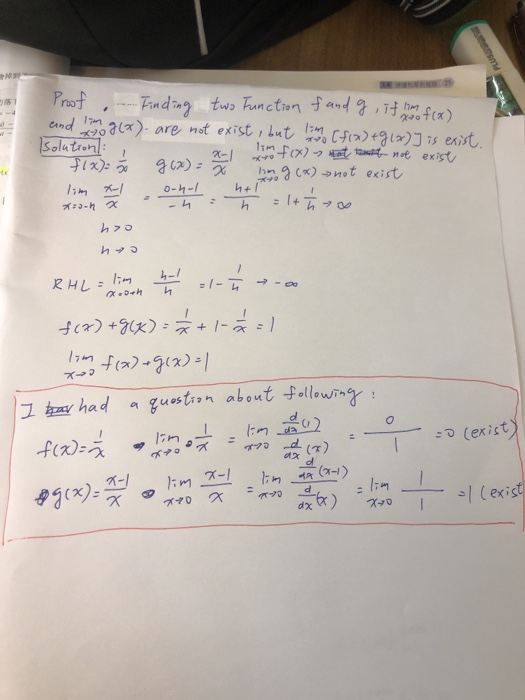 Proof. Finding two Function f and g, if lim x→0 f(x)
and lim x→0 g(x) are not exist, but lim x→0 [f(x)+g(x)] is exist.
Solution:
f(x)= 1/x g(x)= x-1/x lim x→0 f(x) → not exist
lim x→0 g(x) → not exist
lim x=0-h x-1/x = 0-h-1/-h = h+1/h = 1+ 1/h → ∞
h>0
h→0
RHL = lim x=0+h h-1/h = 1- 1/h → -∞
f(x)+g(x) = 1/x + 1- 1/x = 1
lim x→0 f(x)+g(x)=1
I had a question about following:
f(x)= 1/x lim x→0 1/x = lim x→0 d/dx (1) / d/dx (x) = 0/1 =0 (exist)
g(x)= x-1/x lim x→0 x-1/x = lim x→0 d/dx (x-1) / d/dx (x) = lim x→0 1/1 =1 (exist
PLUS